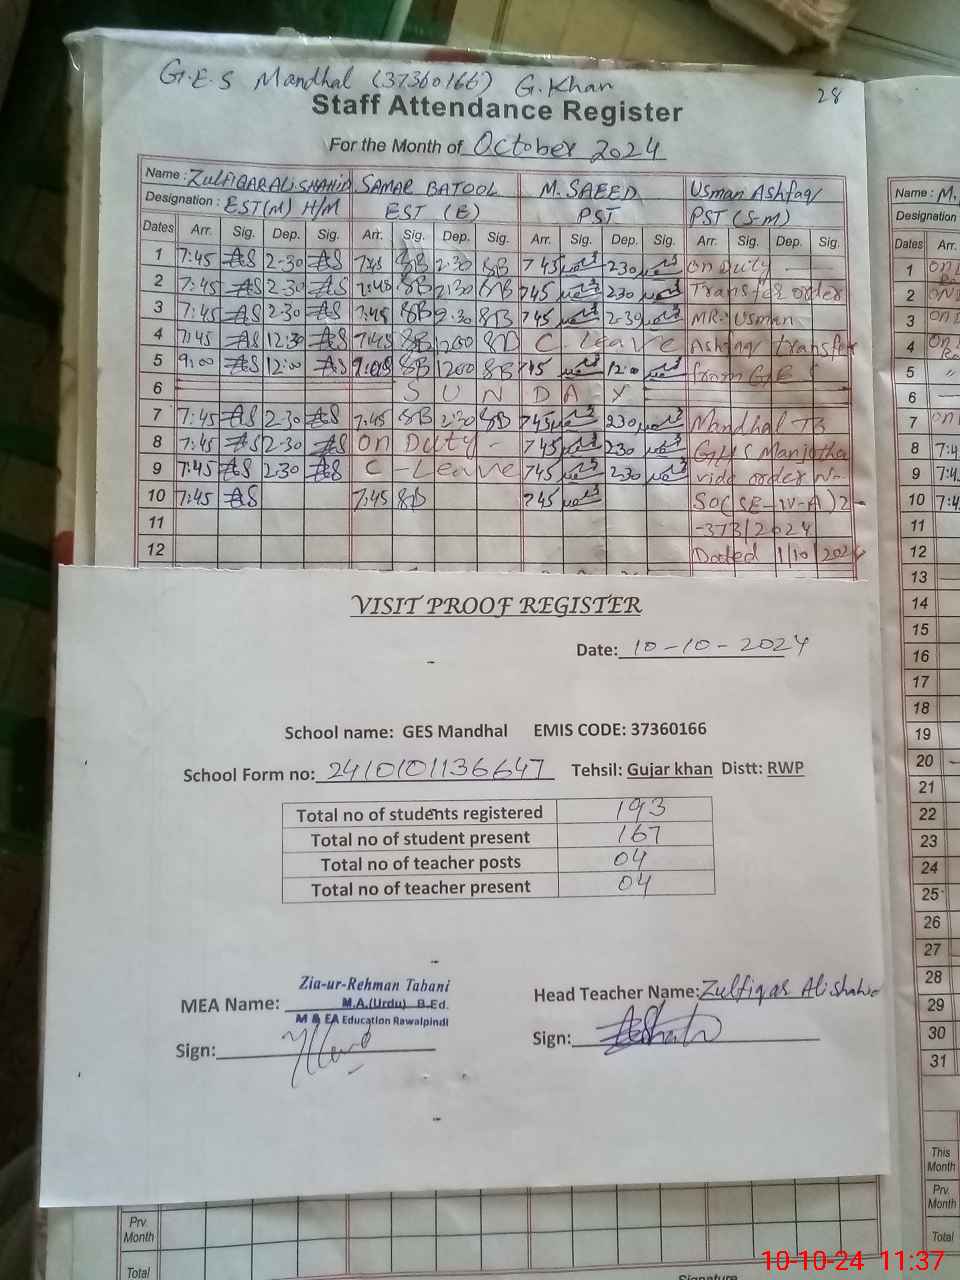 G.E.S Mandhal (37360166) G.Khan
28
Staff Attendance Register
For the Month of October 2024
Name : ZULFIQAR ALI SHAHID SAMAR BATOOL M. SAEED Usman Ashfaq
Designation : EST(M) H/M EST (E) PST PST (S-M)
Dates Arr. Sig. Dep. Sig. Arr. Sig. Dep. Sig. Arr. Sig. Dep. Sig. Arr. Sig. Dep. Sig.
1 7:45 AS 2-30 AS 7:45 SB 2:30 SB 7 45 230 On Duty
2 7:45 AS 2-30 AS 7:45 SB 2:30 SB 745 230 Transfer order
3 7:45 AS 2-30 AS 7:45 SB 2:30 SB 745 2-30 MR. Usman
4 7:45 AS 12:30 AS 7:45 SB 1200 SB C-Leave Ashfaq transfer
5 9:00 AS 12:00 AS 9:00 SB 1200 SB 745 12:00 from GES
6 SUNDAY
7 7:45 AS 2-30 AS 7:45 SB 2:30 SB 745 230 Mandhal To
8 7:45 AS 2-30 AS On Duty - 745 230 GHS Manjotha
9 7:45 AS 2-30 AS C-Leave 745 2-30 vide order No-
10 7:45 AS 7:45 SB 745 SO(SE-IV-A)2-
11 -373/2024
12 Dated 1/10/2024
Name : M.
Designation
Dates Arr.
1
2
3
4
5 "
6
7
8 7:4
9 7:4
10 7:4
11
12
13
14
15
16
17
18
19
20
21
22
23
24
25
26
27
28
29
30
31
This Month
Prv. Month
Total
VISIT PROOF REGISTER
Date: 10-10-2024
School name: GES Mandhal EMIS CODE: 37360166
School Form no: 2410101136647 Tehsil: Gujar khan Distt: RWP
Total no of students registered 193
Total no of student present 167
Total no of teacher posts 04
Total no of teacher present 04
Zia-ur-Rehman Tabani
MEA Name: M.A.(Urdu) B.Ed.
M & EA Education Rawalpindi
Sign:
Head Teacher Name: Zulfiqar Ali shahid
Sign:
Prv. Month
Total
Signature
10-10-24 11:37